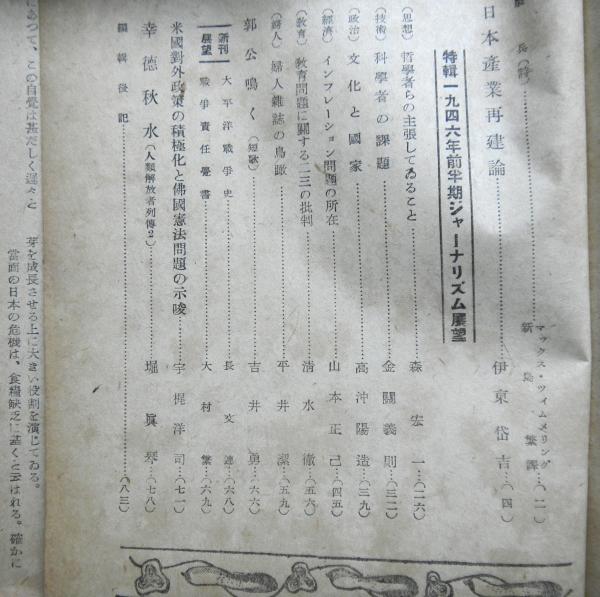 長(詩)……マックス・ツイムメリング 新島繁譯…(二一)
日本産業再建論……伊東岱吉…(四)
特輯 一九四六年前半期ジャーナリズム展望
(思想) 哲學者らの主張してゐること……森宏一…(二六)
(技術) 科學者の課題……金關義則…(三二)
(政治) 文化と國家……高沖陽造…(三九)
(經濟) インフレーション問題の所在……山本正己…(四五)
(教育) 教育問題に關する二三の批判……清水徹…(五六)
(婦人) 婦人雜誌の鳥瞰……平井潔…(五九)
郭公鳴く(短歌)……吉井勇…(六六)
新刊展望
太平洋戰爭史……長文連…(六八)
戰爭責任覺書……大村繁…(六九)
米國對外政策の積極化と佛國憲法問題の示唆……宇梶洋司…(七一)
幸德秋水(人類解放者列傳2)……堀眞琴…(七八)
編輯後記……(八三)
芽を成長させる上に大きい役割を演じてゐる。
當面の日本の危機は、食糧缺乏に基くと云はれる。確かに
にあつて、この自覺は甚だしく遲々と